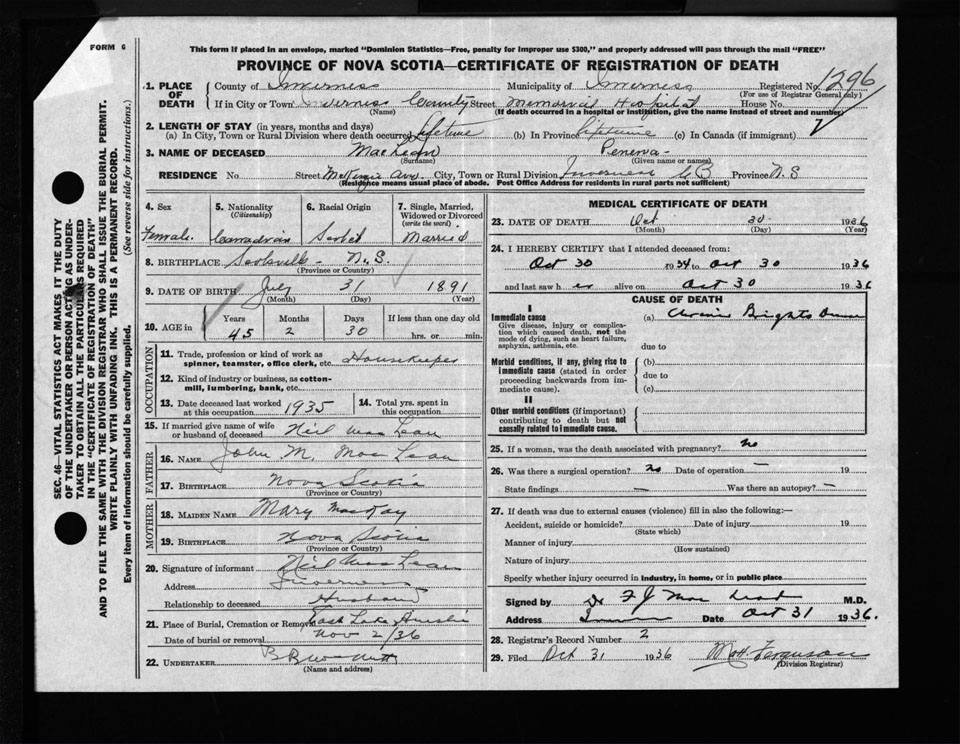 FORM 6
This form if placed in an envelope, marked "Dominion Statistics—Free, penalty for improper use $300," and properly addressed will pass through the mail "FREE"
PROVINCE OF NOVA SCOTIA—CERTIFICATE OF REGISTRATION OF DEATH
SEC. 46— VITAL STATISTICS ACT MAKES IT THE DUTY
OF THE UNDERTAKER OR PERSON ACTING AS UNDER-
TAKER TO OBTAIN ALL THE PARTICULARS REQUIRED
IN THE "CERTIFICATE OF REGISTRATION OF DEATH"
AND TO FILE THE SAME WITH THE DIVISION REGISTRAR WHO SHALL ISSUE THE BURIAL PERMIT.
WRITE PLAINLY WITH UNFADING INK. THIS IS A PERMANENT RECORD.
Every item of Information should be carefully supplied. (See reverse side for instructions.)
1. PLACE OF DEATH County of Inverness Municipality of Inverness Registered No. 1296
(For use of Registrar General only)
If in City or Town Inverness County Street Memorial Hospital House No.
(Name) (If death occurred in a hospital or institution, give the name instead of street and number)
2. LENGTH OF STAY (in years, months and days)
(a) In City, Town or Rural Division where death occurred Lifetime (b) In Province Lifetime (c) In Canada (if immigrant)
3. NAME OF DECEASED MacLean Penerva
(Surname) (Given name or names)
RESIDENCE No. Street McKenzie Ave. City, Town or Rural Division Inverness C B Province N S
(Residence means usual place of abode. Post Office Address for residents in rural parts not sufficient)
4. Sex 5. Nationality (Citizenship) 6. Racial Origin 7. Single, Married, Widowed or Divorced (write the word)
Female. Canadian Scotch Married
8. BIRTHPLACE Scotsville - N.S.
(Province or Country)
9. DATE OF BIRTH July 31 1891
(Month) (Day) (Year)
10. AGE in Years Months Days If less than one day old
45 2 30 hrs. or min.
OCCUPATION
11. Trade, profession or kind of work as spinner, teamster, office clerk, etc. Housekeeper
12. Kind of industry or business, as cotton-mill, lumbering, bank, etc.
13. Date deceased last worked at this occupation 1935 14. Total yrs. spent in this occupation
15. If married give name of wife or husband of deceased Neil MacLean
FATHER
16. NAME John M. MacLean
17. BIRTHPLACE Nova Scotia
(Province or Country)
MOTHER
18. MAIDEN NAME Mary MacKay
19. BIRTHPLACE Nova Scotia
(Province or Country)
20. Signature of informant Neil MacLean
Address Inverness
Relationship to deceased Husband
21. Place of Burial, Cremation or Removal East Lake Ainslie
Date of burial or removal Nov 2/36
22. UNDERTAKER
(Name and address)
MEDICAL CERTIFICATE OF DEATH
23. DATE OF DEATH Oct 30 1936
(Month) (Day) (Year)
24. I HEREBY CERTIFY that I attended deceased from:
Oct 30 1934 to Oct 30 1936
and last saw h er alive on Oct 30 1936
CAUSE OF DEATH
I
Immediate cause (a) Chronic Brights Disease
Give disease, injury or complication which caused death, not the mode of dying, such as heart failure, asphyxia, asthenia, etc.
due to
Morbid conditions, if any, giving rise to immediate cause (stated in order proceeding backwards from immediate cause).
(b)
due to
(c)
II
Other morbid conditions (if important) contributing to death but not causally related to immediate cause.
25. If a woman, was the death associated with pregnancy? no
26. Was there a surgical operation? no Date of operation — 19
State findings — Was there an autopsy? —
27. If death was due to external causes (violence) fill in also the following:—
Accident, suicide or homicide? Date of injury 19
(State which)
Manner of injury
(How sustained)
Nature of injury
Specify whether injury occurred in industry, in home, or in public place
Signed by Dr F J Mac Leod M.D.
Address Date Oct 31 1936.
28. Registrar's Record Number 2
29. Filed Oct 31 1936 Ferguson
(Division Registrar)